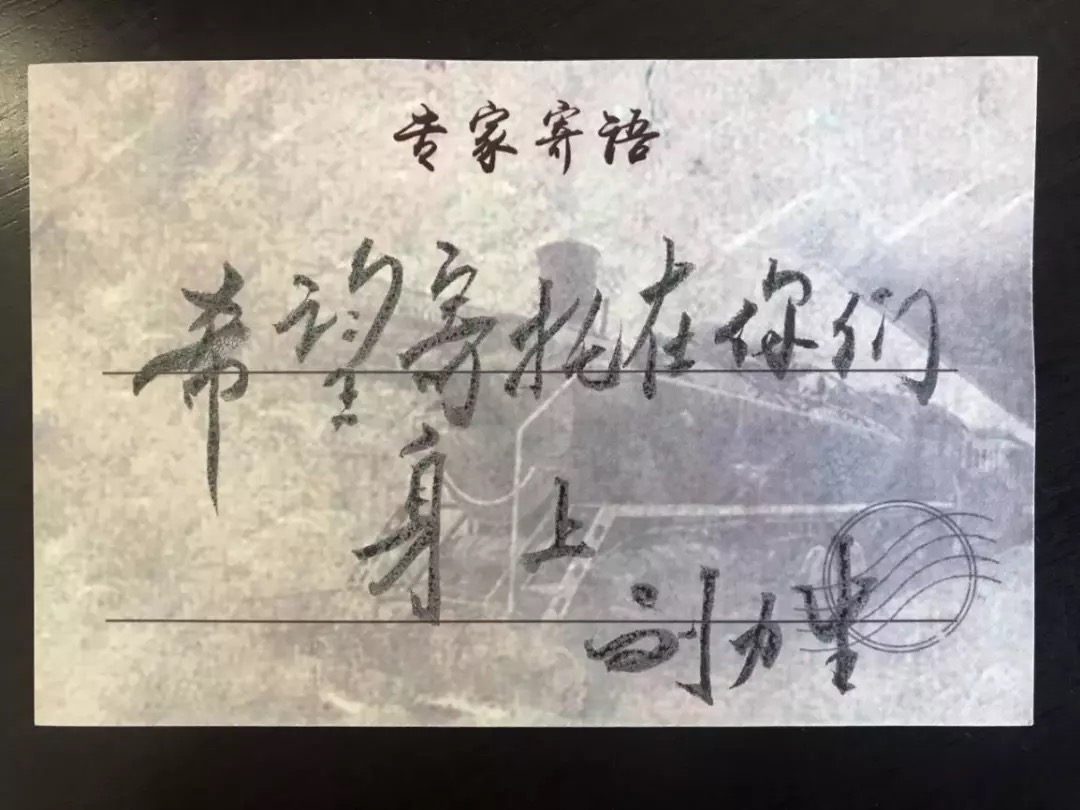 专家寄语
希望寄托在你们
身上
刘力